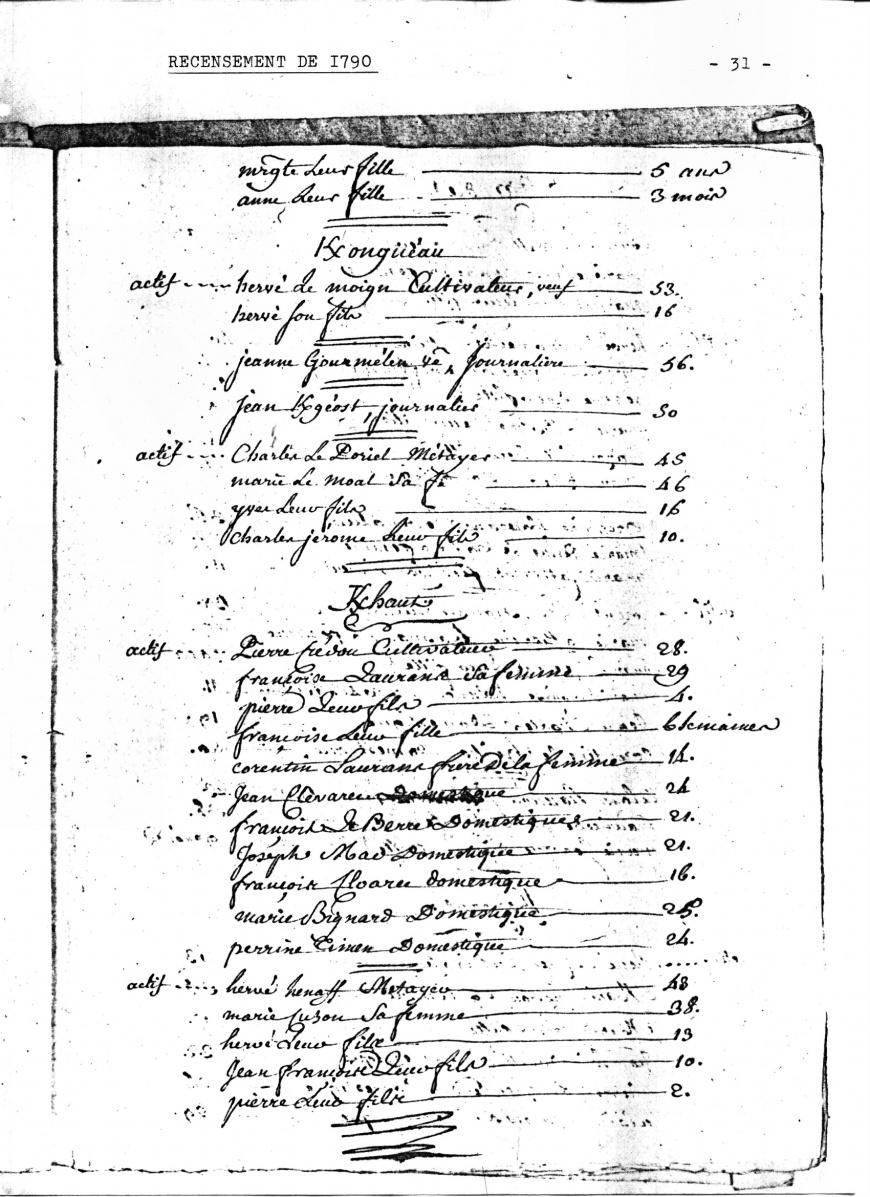 RECENSEMENT DE I790 - 31 -
mrgte Leur fille 5 ans
anne Leur fille 3 mois
Kongüeau
actif hervé Le moign Cultivateur, veuf 53.
hervé son fils 16
jeanne Gourmélen ve, Journaliere 56.
jean Kgéost, journalier 50
actif Charles Le Doriel Métayer 45
marie Le moal Sa fe 46
yves Leur fils 16
charles jérome Leur fils 10.
Khaut
actif Pierre Crédou Cultivateur 28.
françoise Laurans Sa femme 29
pierre Leur fils 4.
françoise Leur fille 6 Semaines
corentin Laurans frere De la femme 14.
Jean Clévarec Domestique 24
françois Le Berre Domestiques 21.
Joseph Mao Domestique 21.
françois Cloarec domestique 16.
marie Bignard Domestique 25.
perrine Domestique 24.
actif hervé henaff Metayer 48
marie Cuzou Sa femme 38.
hervé Leur fils 13
Jean françois Leur fils 10.
pierre Leur fils 2.